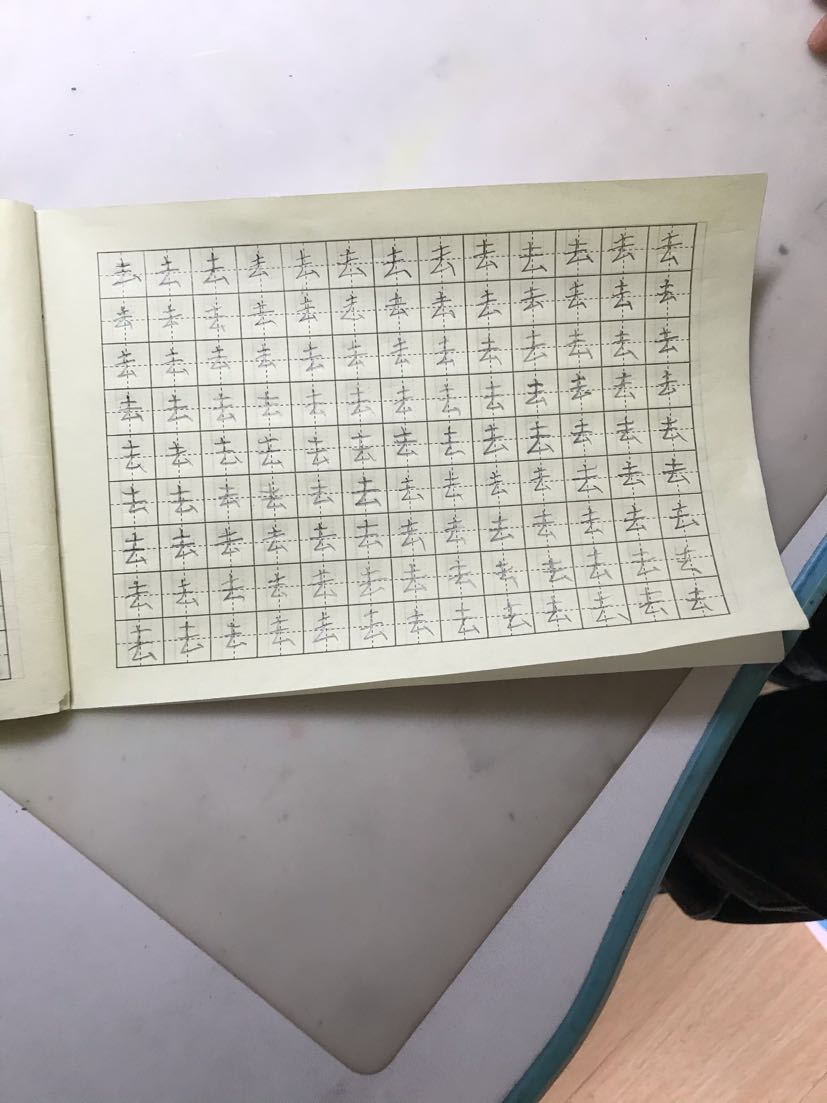 去去去去去去去去去去去去去
去去去去去去去去去去去去去
去去去去去去去去去去去去去
去去去去去去去去去去去去去
去去去去去去去去去去去去去
去去去去去去去去去去去去去
去去去去去去去去去去去去去
去去去去去去去去去去去去去
去去去去去去去去去去去去去